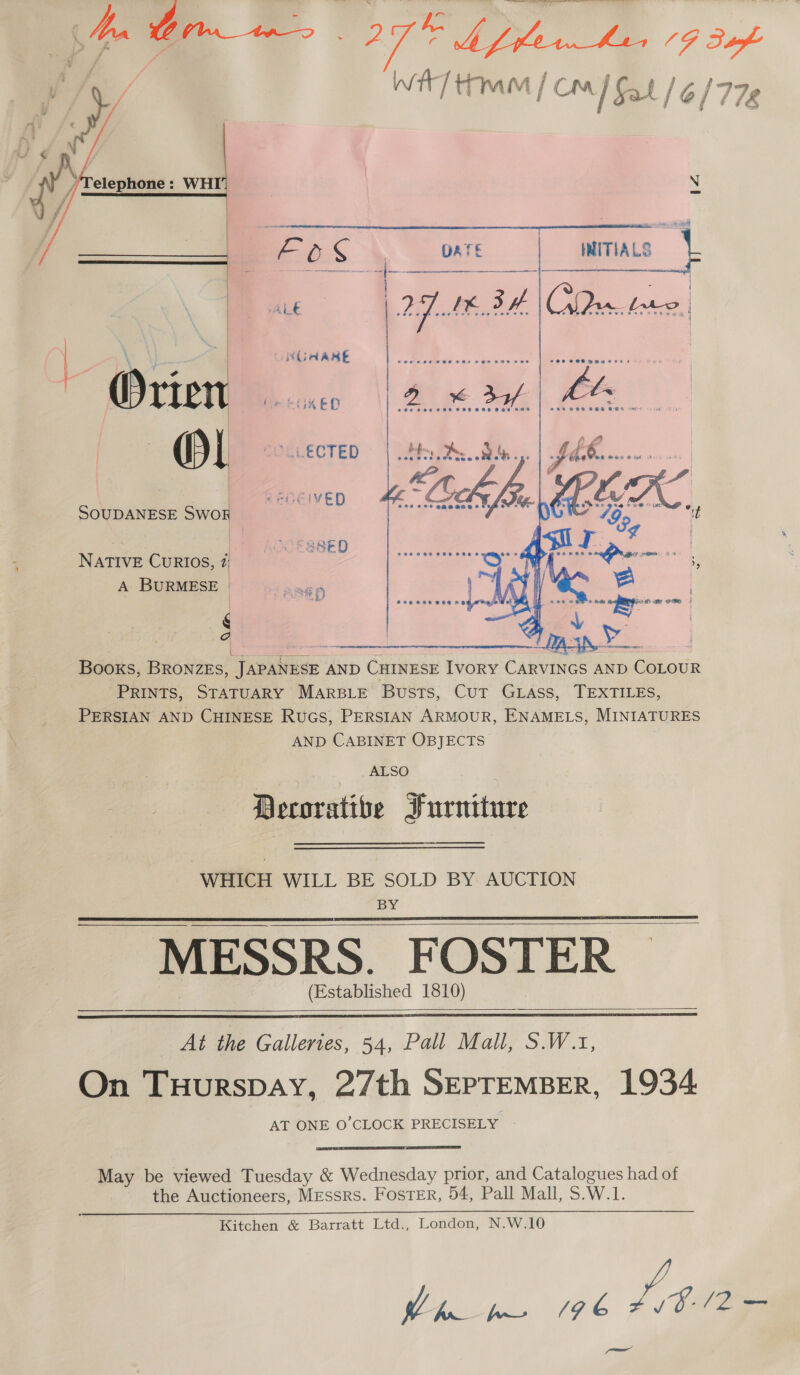 27th September 1934
WA/HMM/CM/Sal/6/778
Telephone: WHI
N
FOS DATE INITIALS
ALE 27. IX. 34
Orien
2 X 34
Ol COLLECTED
RECEIVED
SOUDANESE SWOR
1934
ESSED
NATIVE CURIOS,
A BURMESE
BOOKS, BRONZES, JAPANESE AND CHINESE IVORY CARVINGS AND COLOUR
PRINTS, STATUARY MARBLE BUSTS, CUT GLASS, TEXTILES,
PERSIAN AND CHINESE RUGS, PERSIAN ARMOUR, ENAMELS, MINIATURES
AND CABINET OBJECTS
ALSO
Decorative Furniture
WHICH WILL BE SOLD BY AUCTION
BY
MESSRS. FOSTER
(Established 1810)
At the Galleries, 54, Pall Mall, S.W.1,
On THURSDAY, 27th SEPTEMBER, 1934
AT ONE O'CLOCK PRECISELY
May be viewed Tuesday & Wednesday prior, and Catalogues had of
the Auctioneers, MESSRS. FOSTER, 54, Pall Mall, S.W.1.
Kitchen & Barratt Ltd., London, N.W.10
196 £18.12 —